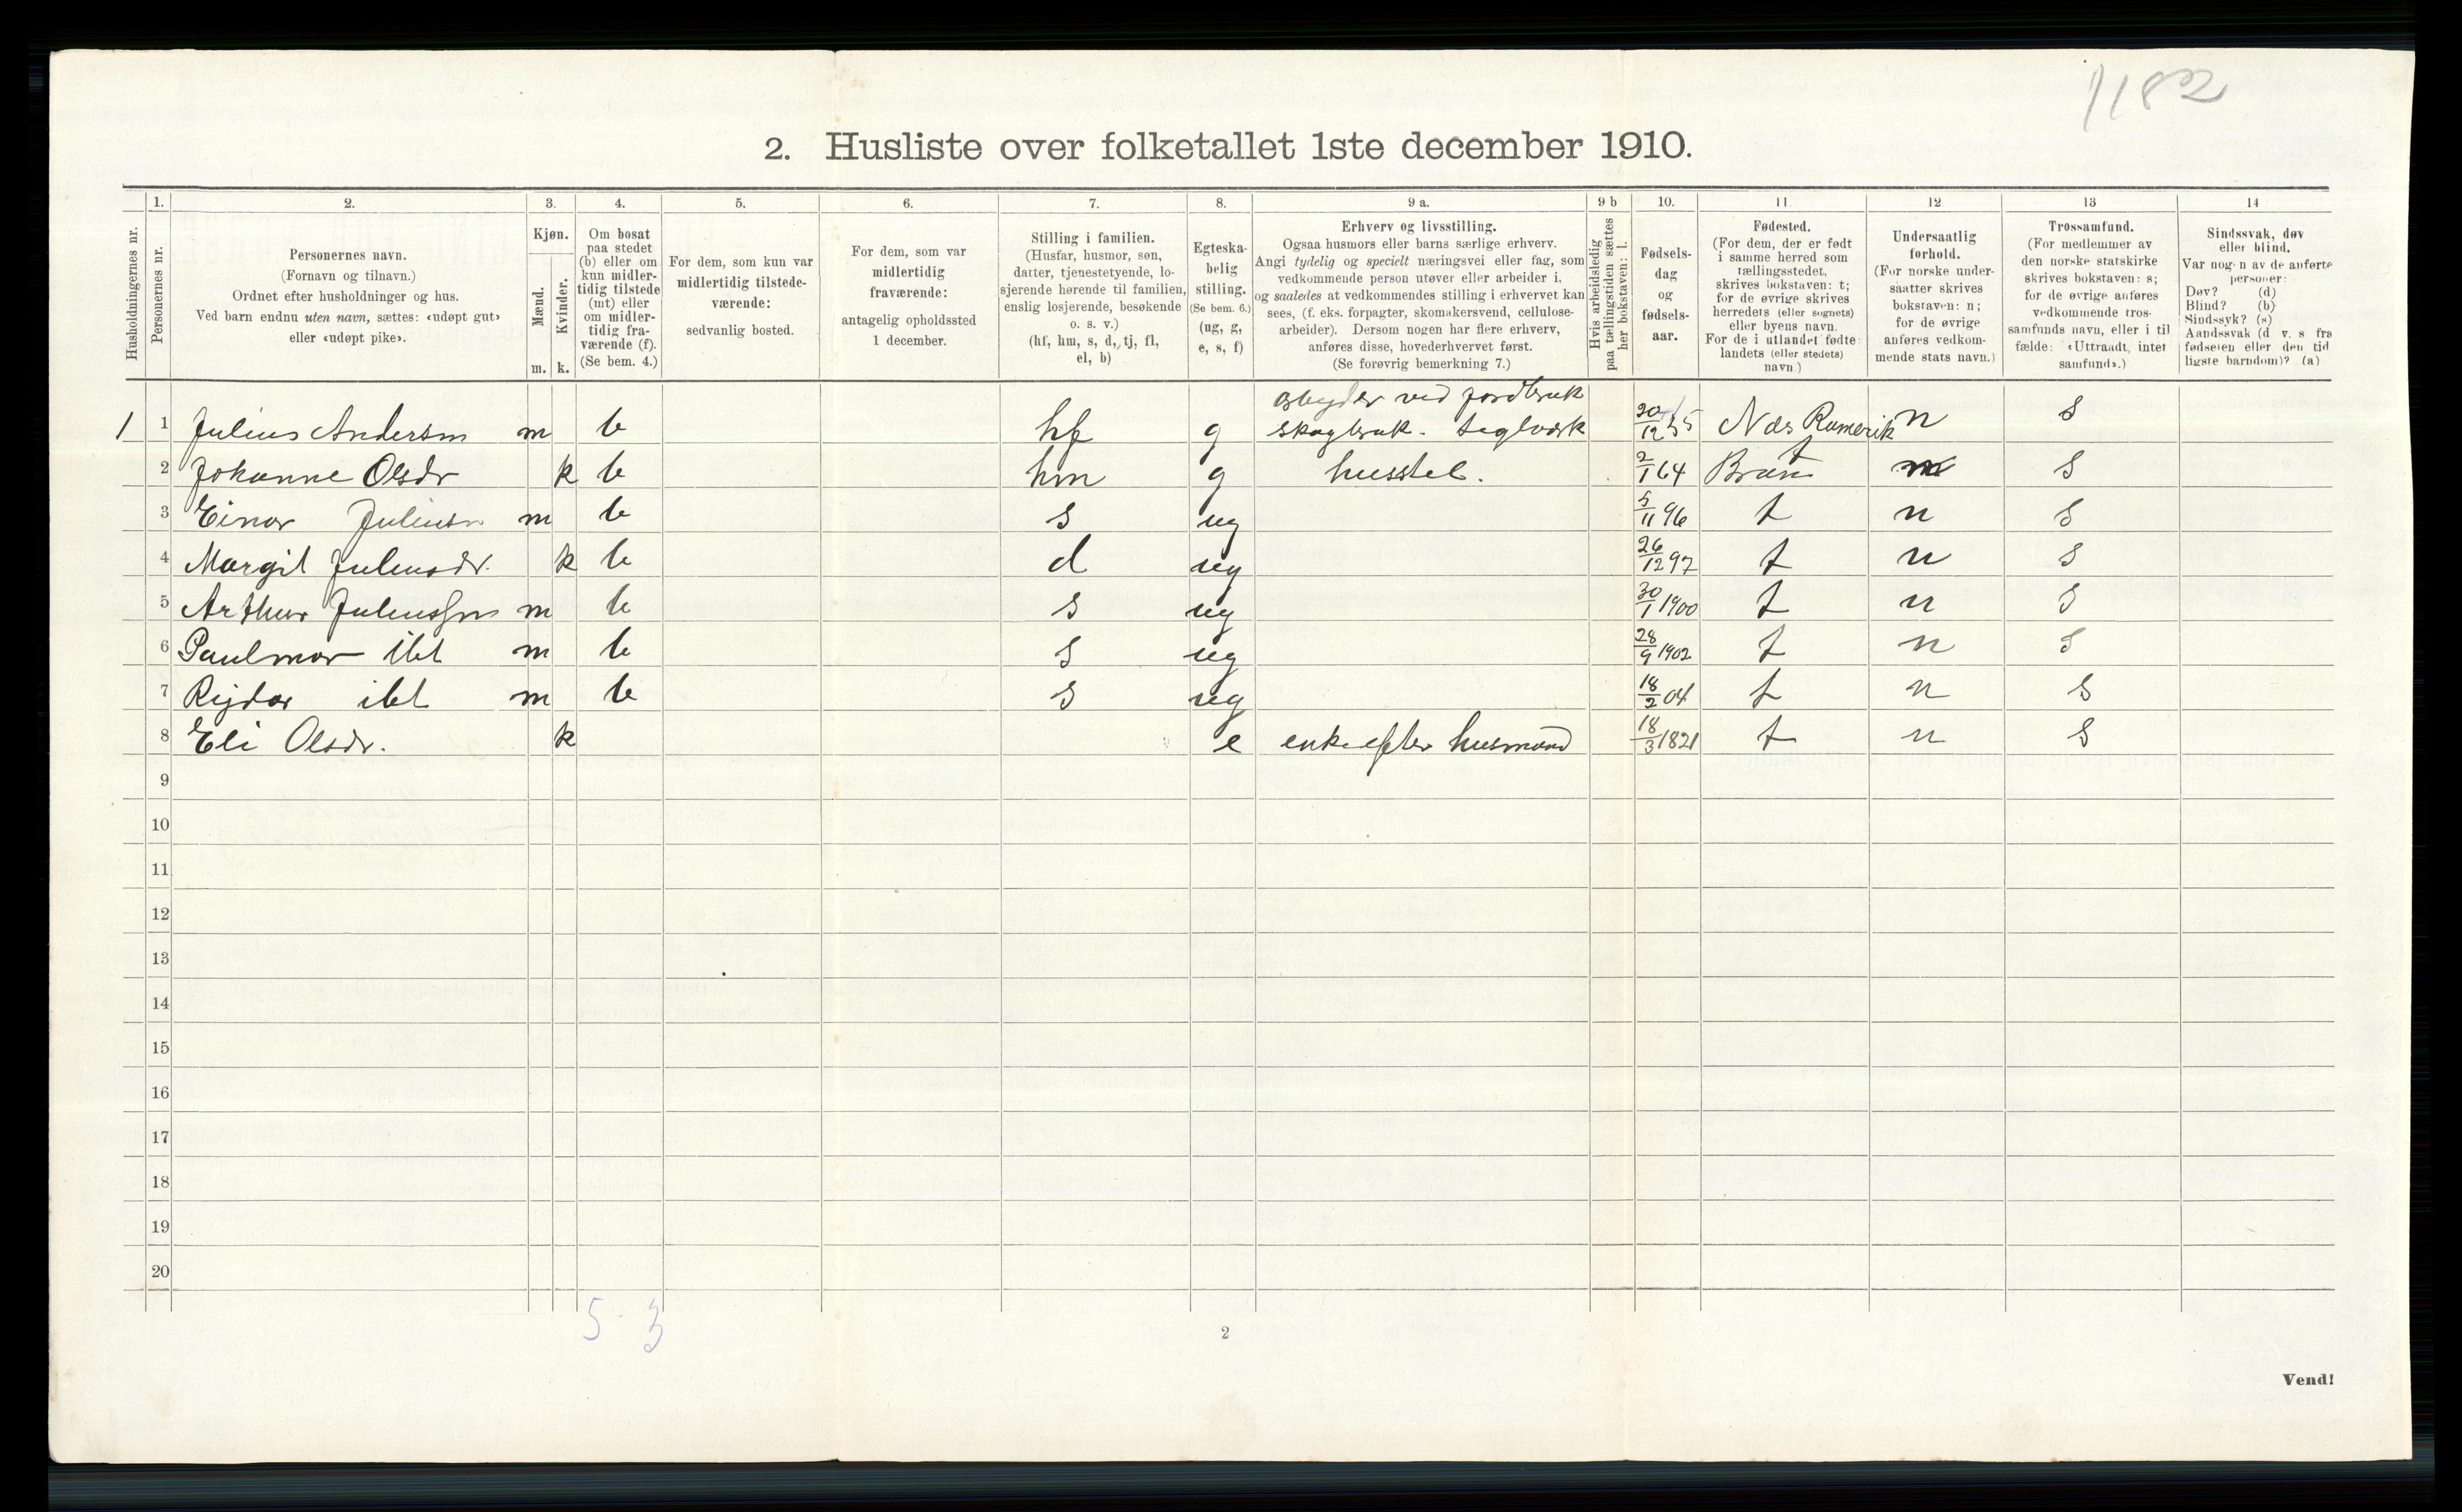 1182
2. Husliste over folketallet 1ste december 1910.
Husholdningernes nr.
1.
Personernes nr.
2.
Personernes navn.
(Fornavn og tilnavn.)
Ordnet efter husholdninger og hus.
Ved barn endnu uten navn, sættes: «udøpt gut»
eller «udøpt pike».
3.
Kjøn.
Mænd.
Kvinder.
m. k.
4.
Om bosat
paa stedet
(b) eller om
kun midler-
tidig tilstede
(mt) eller
om midler-
tidig fra-
værende (f).
(Se bem. 4.)
5.
For dem, som kun var
midlertidig tilstede-
værende:
sedvanlig bosted.
6.
For dem, som var
midlertidig
fraværende:
antagelig opholdssted
1 december.
7.
Stilling i familien.
(Husfar, husmor, søn,
datter, tjenestetyende, lo-
sjerende hørende til familien,
enslig losjerende, besøkende
o. s. v.)
(hf, hm, s, d, tj, fl,
el, b)
8.
Egteska-
belig
stilling.
(Se bem. 6.)
(ug, g,
e, s, f)
9 a.
Erhverv og livsstilling.
Ogsaa husmors eller barns særlige erhverv.
Angi tydelig og specielt næringsvei eller fag, som
vedkommende person utøver eller arbeider i,
og saaledes at vedkommendes stilling i erhvervet kan
sees, (f. eks. forpagter, skomakersvend, cellulose-
arbeider). Dersom nogen har flere erhverv,
anføres disse, hovederhvervet først.
(Se forøvrig bemerkning 7.)
9 b
Hvis arbeidsledig
paa tællingstiden sættes
her bokstaven: l.
10.
Fødsels-
dag
og
fødsels-
aar.
11
Fødested.
(For dem, der er født
i samme herred som
tællingsstedet,
skrives bokstaven: t;
for de øvrige skrives
herredets (eller sognets)
eller byens navn.
For de i utlandet fødte:
landets (eller stedets)
navn.)
12
Undersaatlig
forhold.
(For norske under-
saatter skrives
bokstaven: n;
for de øvrige
anføres vedkom-
mende stats navn.)
13
Trossamfund.
(For medlemmer av
den norske statskirke
skrives bokstaven: s;
for de øvrige anføres
vedkommende tros-
samfunds navn, eller i til
fælde: «Uttraadt, intet
samfund».)
14
Sindssvak, døv
eller blind.
Var nogen av de anførte
personer:
Døv? (d)
Blind? (b)
Sindssyk? (s)
Aandssvak (d. v. s. fra
fødselen eller den tid
ligste barndom)? (a)
arbeyder ved jordbruk
1 1 Julius Andersen m b hf g skogbruk. teglværk 30/12 55 Nes Romerik n s
2 Johanne Olsdr k b hm g husstel. 2/1 64 t s
3 Einar Juliusn m b s ug 5/11 96 t n s
4 Margit Juliusdr. k b d ug 26/12 97 t n s
5 Arthur Juliussen m b s ug 30/1 1900 t n s
6 Paulmar ibt m b s ug 28/9 1902 t n s
7 Rejdar ibt m b s ug 18/2 04 t n s
8 Eli Olsdr. k e enke efter husmand 18/3 1821 t n s
9
10
11
12
13
14
15
16
17
18
19
20
5-3
2
Vend!